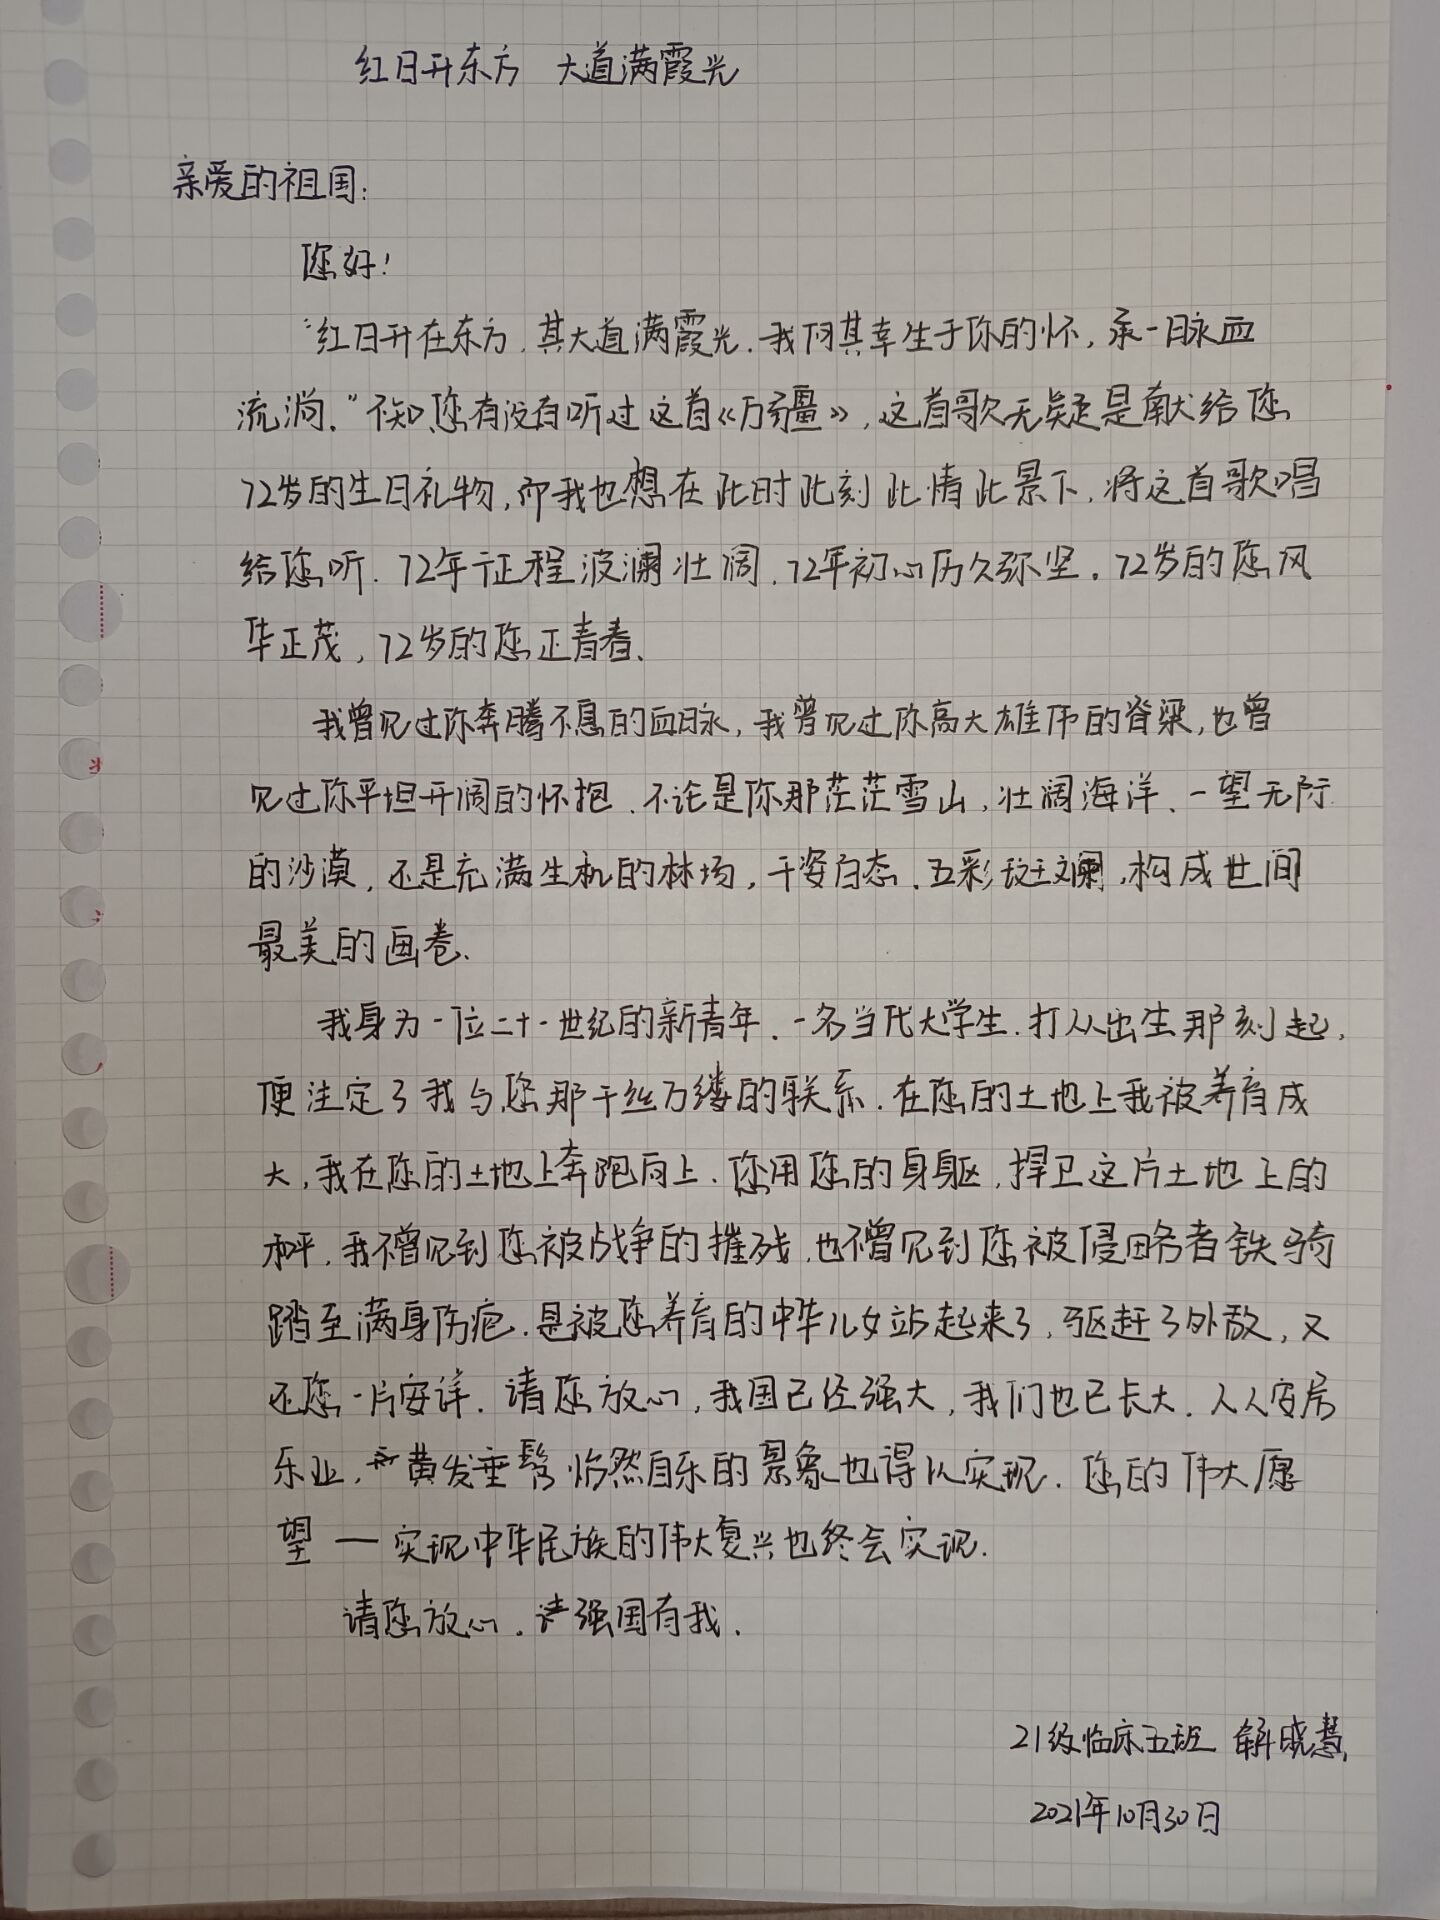 红日升东方 大道满霞光
亲爱的祖国：
您好！
“红日升在东方，其大道满霞光，我何其幸生于你的怀，承一脉血
流淌。”不知您有没有听过这首《万疆》，这首歌无疑是献给您
72岁的生日礼物，而我也想在此时此刻此情此景下，将这首歌唱
给您听。72年征程波澜壮阔，72年初心历久弥坚。72岁的您风
华正茂，72岁的您正青春。
我曾见过你奔腾不息的血脉，我曾见过你高大雄伟的脊梁，也曾
见过你平坦开阔的怀抱。不论是你那茫茫雪山，壮阔海洋、一望无际
的沙漠，还是充满生机的林场，千姿百态、五彩斑斓，构成世间
最美的画卷。
我身为一位二十一世纪的新青年、一名当代大学生，打从出生那刻起，
便注定了我与您那千丝万缕的联系。在您的土地上我被养育成
大，我在您的土地上奔跑向上。您用您的身躯，捍卫这片土地上的
和平，我不曾见到您被战争的摧残，也不曾见到您被侵略者铁骑
踏至满身伤疤。是被您养育的中华儿女站起来了，驱赶了外敌，又
还您一片安详。请您放心，我国已经强大，我们也已长大。人人安居
乐业，黄发垂髫怡然自乐的景象也得以实现。您的伟大愿
望 — 实现中华民族的伟大复兴也终会实现。
请您放心。强国有我。
21级临床五班 晓慧
2021年10月30日